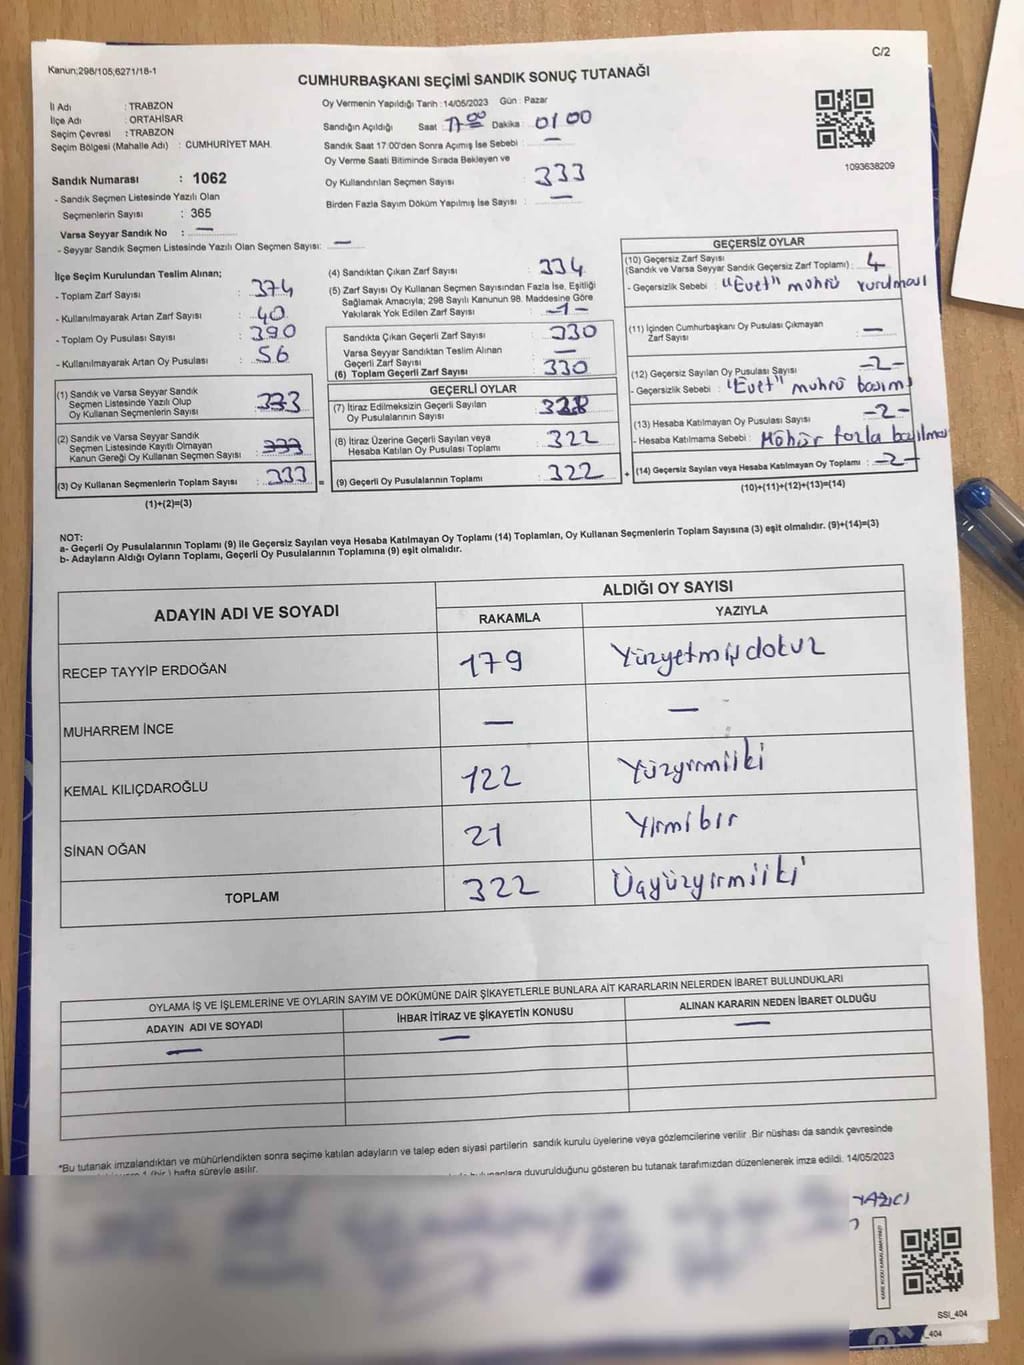 Kanun;298/105,6271/18-1
C/2
CUMHURBAŞKANI SEÇİMİ SANDIK SONUÇ TUTANAĞI
İl Adı : TRABZON
İlçe Adı : ORTAHİSAR
Seçim Çevresi : TRABZON
Seçim Bölgesi (Mahalle Adı) : CUMHURİYET MAH.
Sandık Numarası : 1062
- Sandık Seçmen Listesinde Yazılı Olan
Seçmenlerin Sayısı : 365
Varsa Seyyar Sandık No : —
- Seyyar Sandık Seçmen Listesinde Yazılı Olan Seçmen Sayısı: —
Oy Vermenin Yapıldığı Tarih : 14/05/2023 Gün : Pazar
Sandığın Açıldığı Saat : 17:00 Dakika : 01 00
Sandık Saat 17:00'den Sonra Açımış İse Sebebi : —
Oy Verme Saati Bitiminde Sırada Bekleyen ve
Oy Kullandırılan Seçmen Sayısı : 333
Birden Fazla Sayım Döküm Yapılmış İse Sayısı : —
1093638209
İlçe Seçim Kurulundan Teslim Alınan;
- Toplam Zarf Sayısı : 374
- Kullanılmayarak Artan Zarf Sayısı : 40
- Toplam Oy Pusulası Sayısı : 390
- Kullanılmayarak Artan Oy Pusulası : 56
(1) Sandık ve Varsa Seyyar Sandık
Seçmen Listesinde Yazılı Olup
Oy Kullanan Seçmenlerin Sayısı : 333
(2) Sandık ve Varsa Seyyar Sandık
Seçmen Listesinde Kayıtlı Olmayan
Kanun Gereği Oy Kullanan Seçmen Sayısı : 333
(3) Oy Kullanan Seçmenlerin Toplam Sayısı : 333 =
(1)+(2)=(3)
(4) Sandıktan Çıkan Zarf Sayısı : 334
(5) Zarf Sayısı Oy Kullanan Seçmen Sayısından Fazla İse, Eşitliği
Sağlamak Amacıyla; 298 Sayılı Kanunun 98. Maddesine Göre
Yakılarak Yok Edilen Zarf Sayısı : -1-
Sandıkta Çıkan Geçerli Zarf Sayısı : 330
Varsa Seyyar Sandıktan Teslim Alınan
Geçerli Zarf Sayısı : —
(6) Toplam Geçerli Zarf Sayısı : 330
GEÇERLİ OYLAR
(7) İtiraz Edilmeksizin Geçerli Sayılan
Oy Pusulalarının Sayısı : 328
(8) İtiraz Üzerine Geçerli Sayılan veya
Hesaba Katılan Oy Pusulası Toplamı : 322
(9) Geçerli Oy Pusulalarının Toplamı : 322 +
GEÇERSİZ OYLAR
(10) Geçersiz Zarf Sayısı
(Sandık ve Varsa Seyyar Sandık Geçersiz Zarf Toplamı) : 4
- Geçersizlik Sebebi : "Evet" muhrü vurulması
(11) İçinden Cumhurbaşkanı Oy Pusulası Çıkmayan
Zarf Sayısı : —
(12) Geçersiz Sayılan Oy Pusulası Sayısı : -2-
- Geçersizlik Sebebi : "Evet" muhrü basımı
(13) Hesaba Katılmayan Oy Pusulası Sayısı : -2-
- Hesaba Katılmama Sebebi : Möhür fazla basılması
(14) Geçersiz Sayılan veya Hesaba Katılmayan Oy Toplamı : -2-
(10)+(11)+(12)+(13)=(14)
NOT:
a- Geçerli Oy Pusulalarının Toplamı (9) ile Geçersiz Sayılan veya Hesaba Katılmayan Oy Toplamı (14) Toplamları, Oy Kullanan Seçmenlerin Toplam Sayısına (3) eşit olmalıdır. (9)+(14)=(3)
b- Adayların Aldığı Oyların Toplamı, Geçerli Oy Pusulalarının Toplamına (9) eşit olmalıdır.
ADAYIN ADI VE SOYADI
ALDIĞI OY SAYISI
RAKAMLA YAZIYLA
RECEP TAYYİP ERDOĞAN 179 Yüzyetmişdokuz
MUHARREM İNCE — —
KEMAL KILIÇDAROĞLU 122 Yüzyirmiiki
SİNAN OĞAN 21 Yirmibir
TOPLAM 322 Üçyüzyirmiiki
OYLAMA İŞ VE İŞLEMLERİNE VE OYLARIN SAYIM VE DÖKÜMÜNE DAİR ŞİKAYETLERLE BUNLARA AİT KARARLARIN NELERDEN İBARET BULUNDUKLARI
ADAYIN ADI VE SOYADI İHBAR İTİRAZ VE ŞİKAYETİN KONUSU ALINAN KARARIN NEDEN İBARET OLDUĞU
— — —
*Bu tutanak imzalandıktan ve mühürlendikten sonra seçime katılan adayların ve talep eden siyasi partilerin sandık kurulu üyelerine veya gözlemcilerine verilir .Bir nüshası da sandık çevresinde
1 (bir ) hafta süreyle asılır.
duyurulduğunu gösteren bu tutanak tarafımızdan düzenlenerek imza edildi. 14/05/2023
YAZICI
KARE KODU KARALAMAYINIZ!
SSİ_404
_404